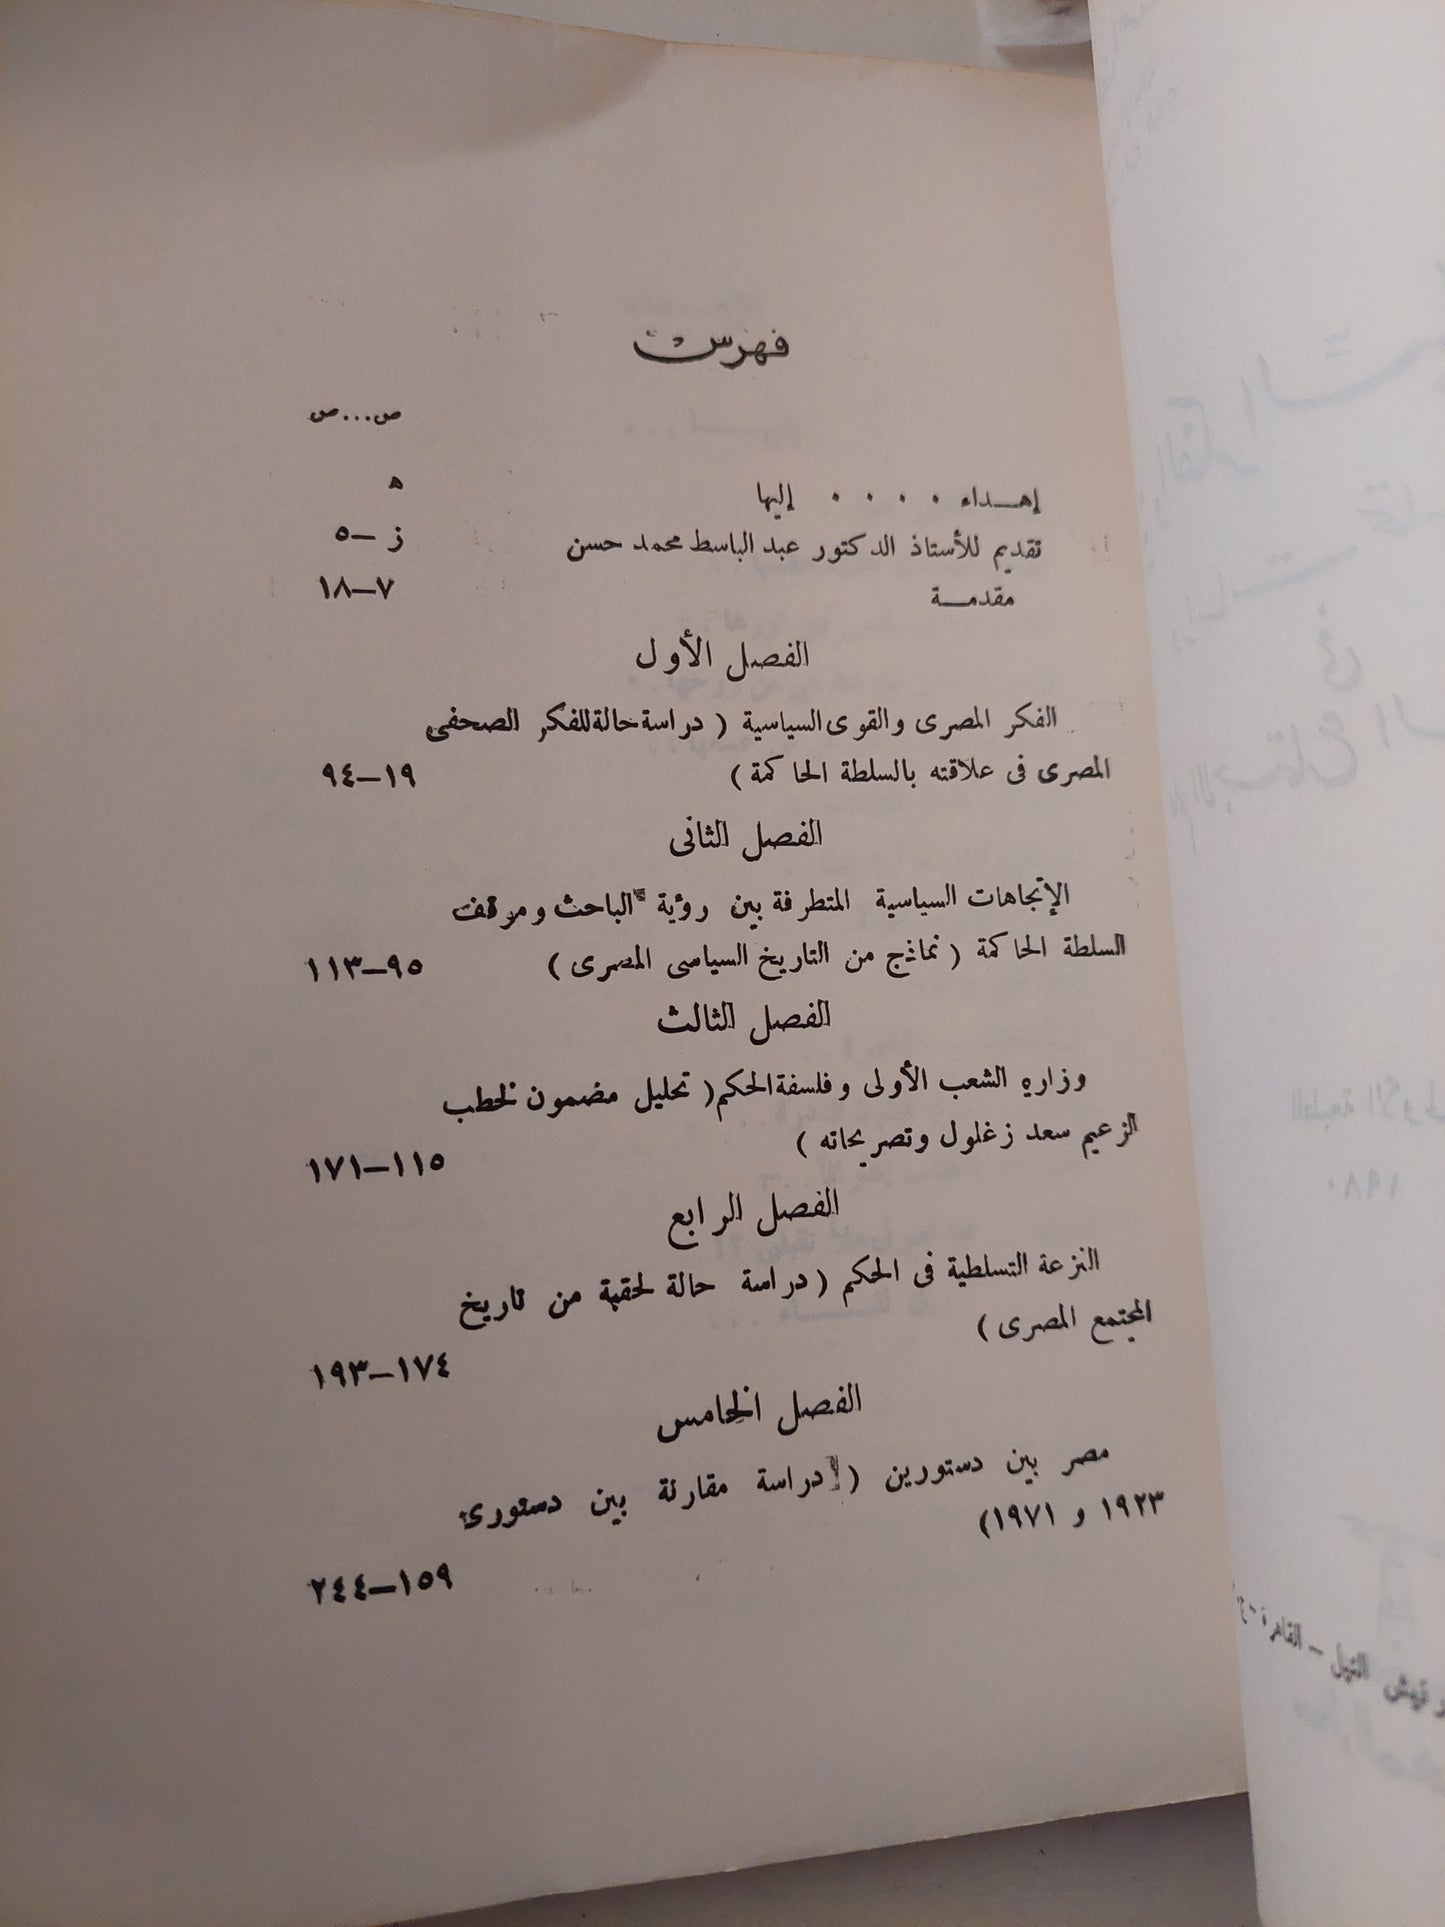 فهرست
ص...ص
إهـــداء . . . . إليها ه
تقديم للأستاذ الدكتور عبد الباسط محمد حسن ز –٥
مقدمــة ٧–١٨
الفصل الأول
الفكر المصرى والقوى السياسية ( دراسة حالة للفكر الصحفى
المصرى فى علاقته بالسلطة الحاكمة ) ١٩–٩٤
الفصل الثانى
الإتجاهات السياسية المتطرفة بين رؤية الباحث وموقف
السلطة الحاكمة ( نماذج من التاريخ السياسى المصرى ) ٩٥–١١٣
الفصل الثالث
وزاره الشعب الأولى وفلسفة الحكم ( تحليل مضمون لخطب
الزعيم سعد زغلول وتصريحاته ) ١١٥–١٧١
الفصل الرابع
النزعة التسلطية فى الحكم ( دراسة حالة لحقبة من تاريخ
المجتمع المصرى ) ١٧٤–١٩٣
الفصل الخامس
مصر بين دستورين ( دراسة مقارنة بين دستورى
١٩٢٣ و ١٩٧١) ١٥٩–٢٤٤
الطبعة الأولى
١٩٨٠
النيل – القاهرة